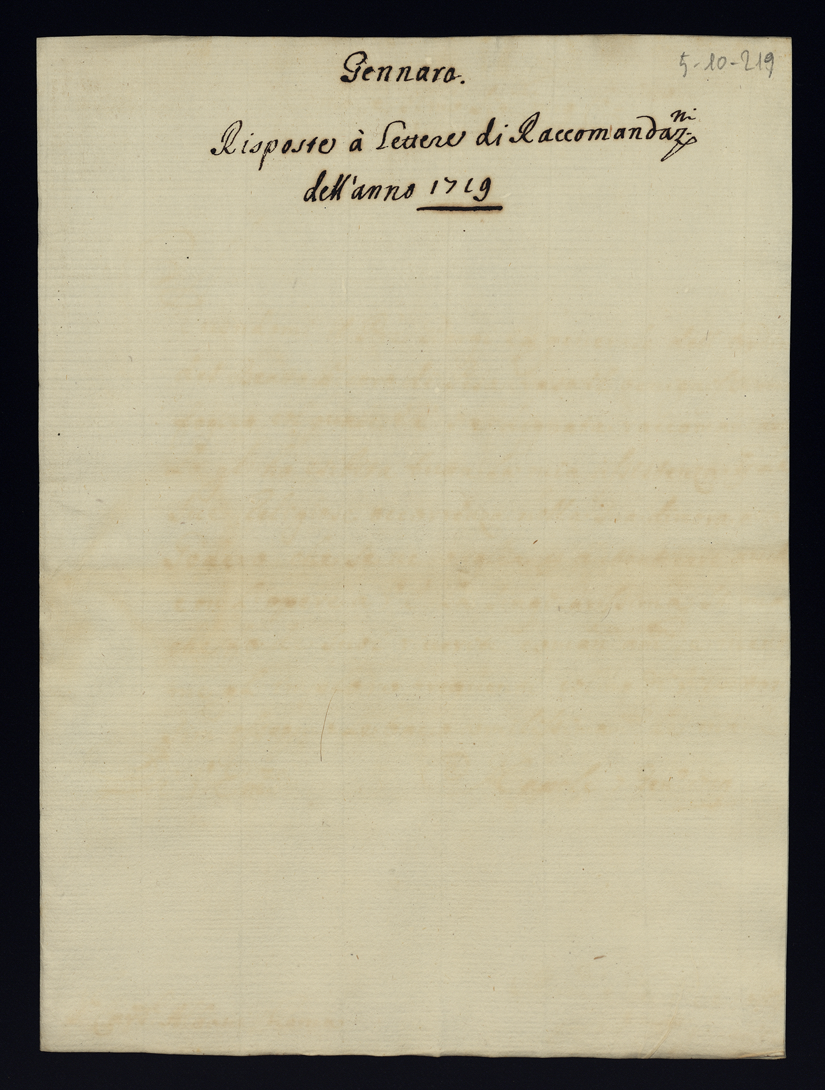 5-10-219
Gennaro.
Risposte à Lettere di Raccomandaz.ni
dell'anno 1719